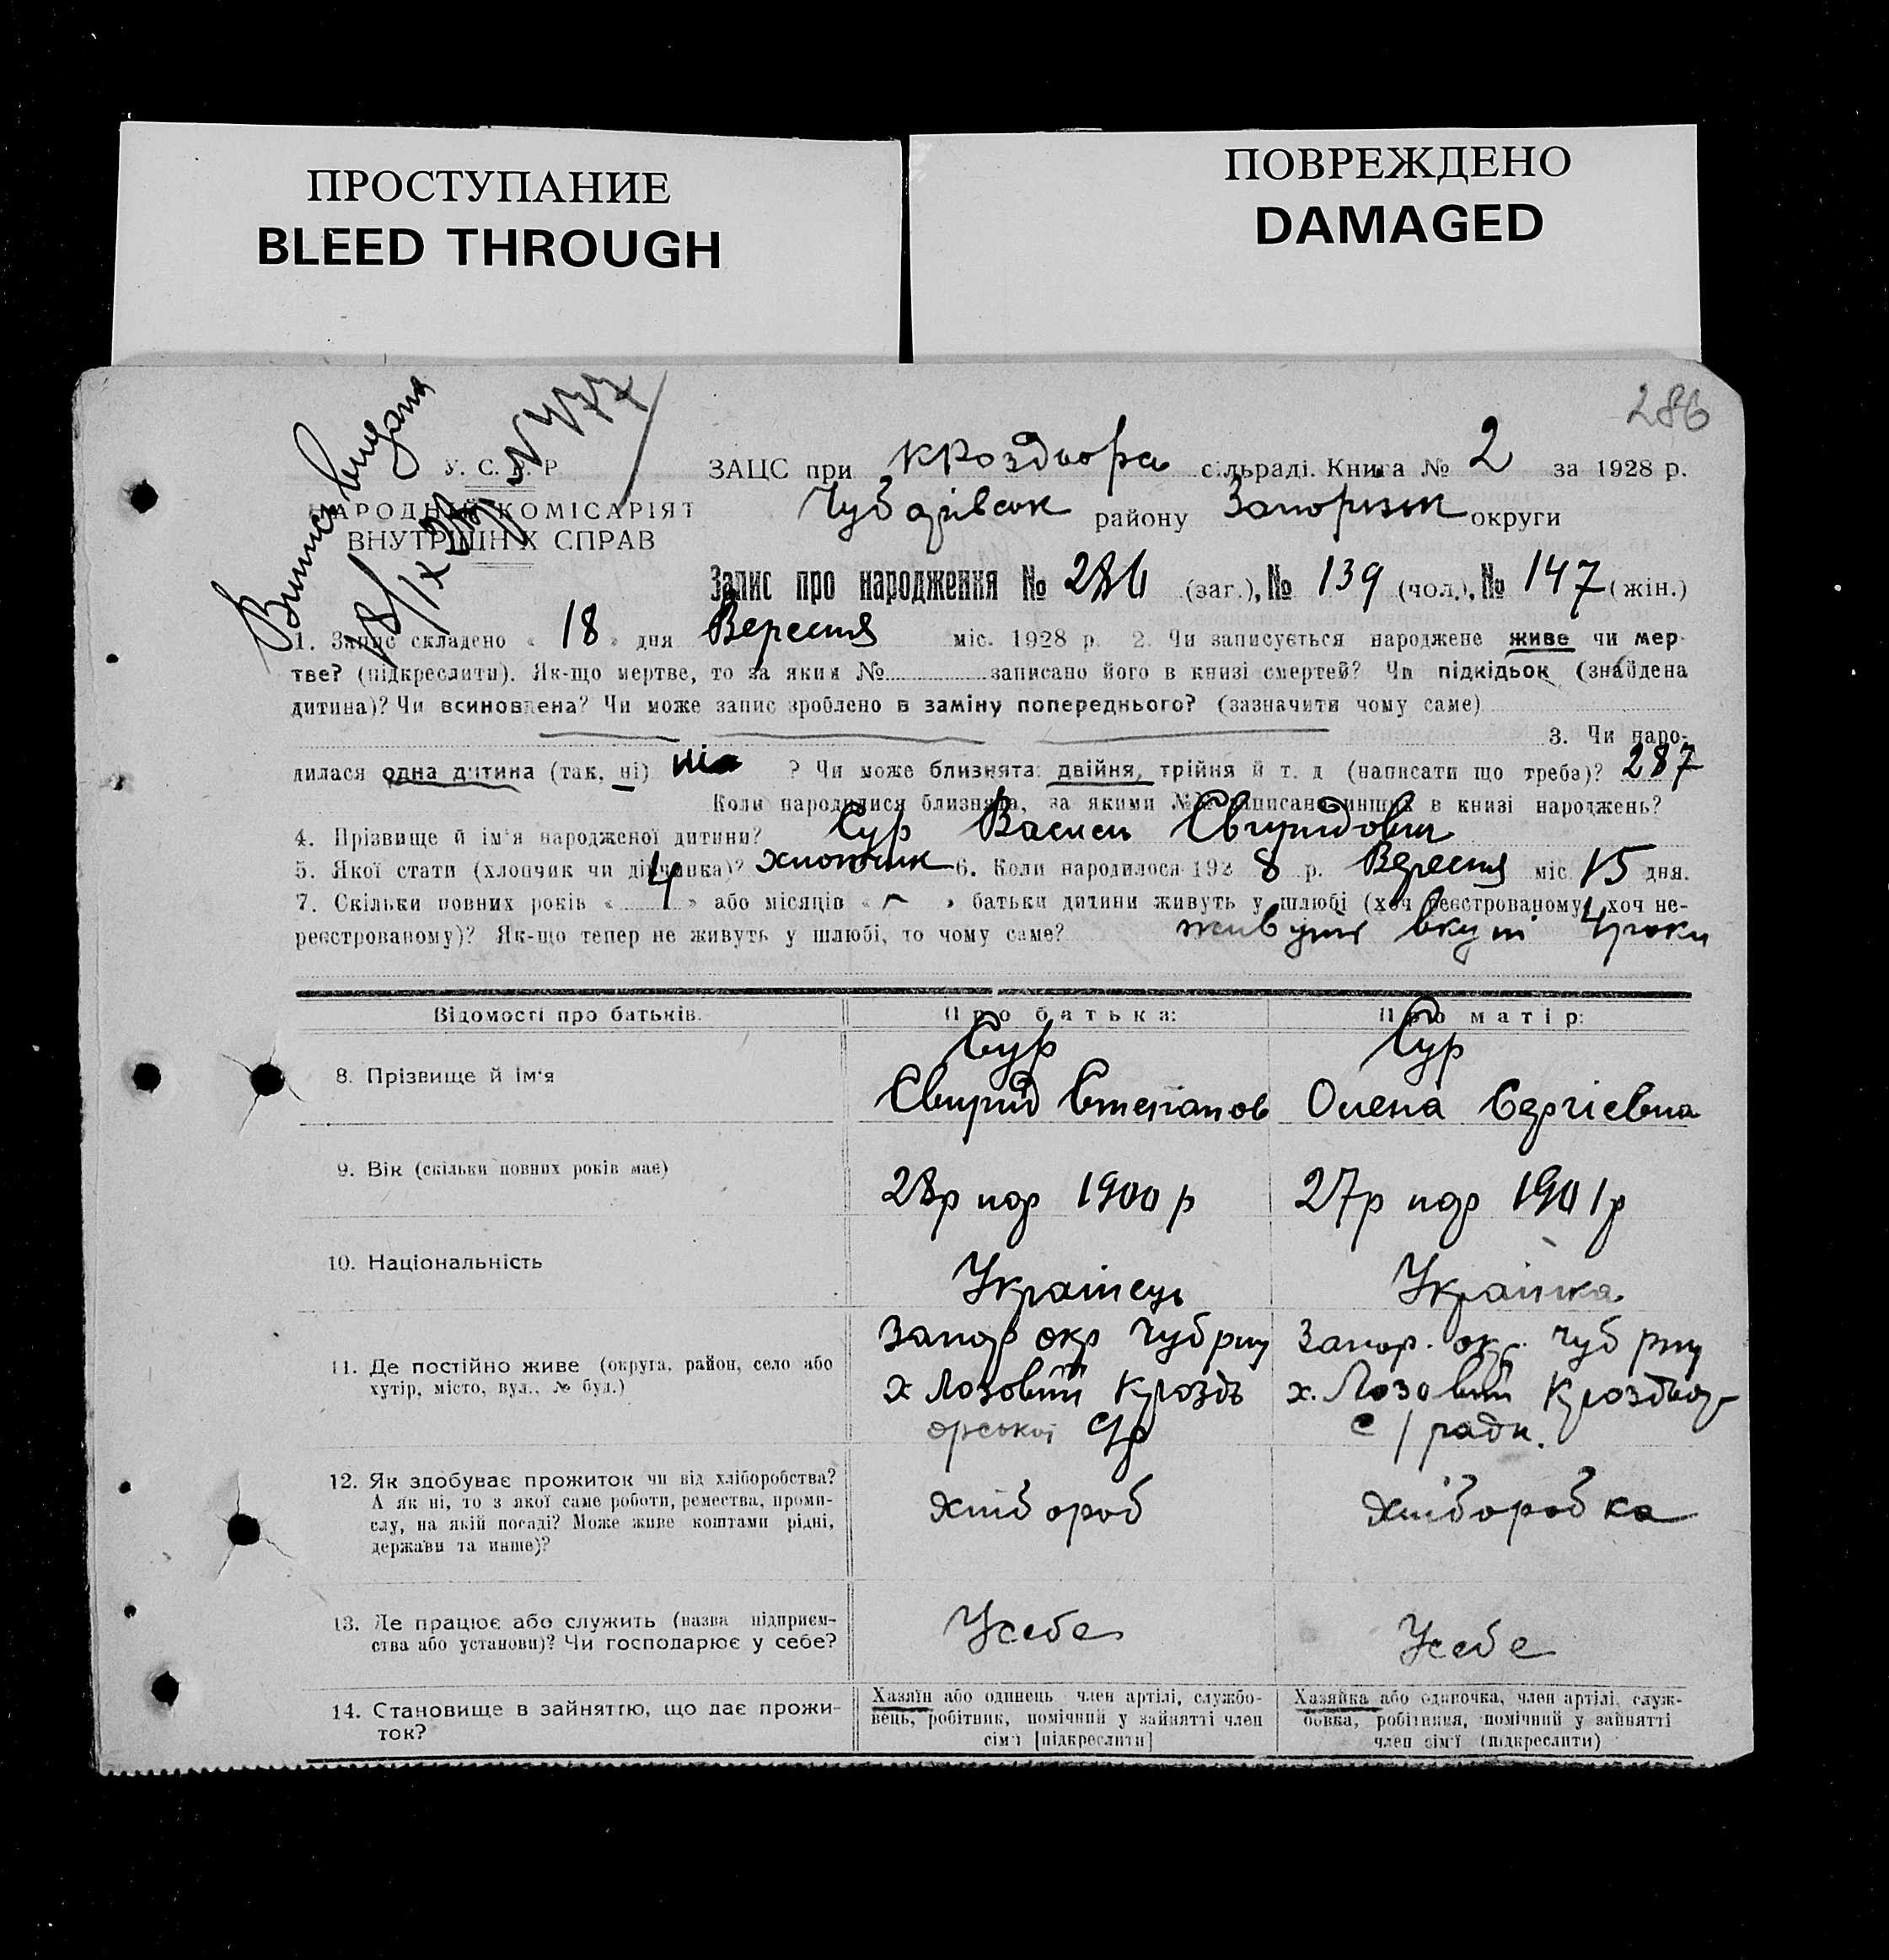 ПРОСТУПАНИЕ
BLEED THROUGH
ПОВРЕЖДЕНО
DAMAGED
286
Випись видана
18/IX 28 р. № 477
У. С. Р. Р
НАРОДНИЙ КОМІСАРІЯТ
ВНУТРІШНІХ СПРАВ
ЗАЦС при Кроздвора сільраді. Книга № 2 за 1928 р.
Чубарівськ району Запоризьк округи
Запис про народження № 286 (заг.), № 139 (чол.), № 147 (жін.)
1. Запис складено « 18 » дня Вересня міс. 1928 р. 2. Чи записується народжене живе чи мер-
тве? (підкреслити). Як-що мертве, то за яким № записано його в книзі смертей? Чи підкідьок (знайдена
дитина)? Чи всиновлена? Чи може запис зроблено в заміну попереднього? (зазначити чому саме)
3. Чи наро-
дилася одна дитина (так, ні) ? Чи може близнята: двійня, трійня й т. д (написати що треба)? 287
Коли народилися близнята, за якими №№ записано инших в книзі народжень?
4. Прізвище й ім'я народженої дитини? Сур Василь Свиридович
5. Якої стати (хлопчик чи дівчинка)? хлопчик 6. Коли народилося 192 8 р. Вересня міс 15 дня.
7. Скільки повних років « 4 » або місяців « – » батьки дитини живуть у шлюбі (хоч реєстрованому, хоч не-
реєстрованому)? Як-що тепер не живуть у шлюбі, то чому саме? живуть вкупі 4 роки
Відомості про батьків. Про батька: Про матір:
8. Прізвище й ім'я
Сур
Свирид Степанов
Сур
Олена Сергієвна
9. Вік (скільки повних років має)
28р нар 1900 р
27р нар 1901р
10. Національність
Українець
Українка
11. Де постійно живе (округа, район, село або
хутір, місто, вул., № буд.)
Запор окр Чуб рну
х Лозовий Кроздв
орської с/р
Запор. окр. Чуб рну
х. Лозовий Кроздвор
с/ради.
12. Як здобуває прожиток чи від хліборобства?
А як ні, то з якої саме роботи, ремества, проми-
слу, на якій посаді? Може живе коштами рідні,
держави та инше)?
хлібороб
хліборобка
13. Де працює або служить (назва підприєм-
ства або установи)? Чи господарює у себе?
Усебе
Усебе
14. Становище в зайняттю, що дає прожи-
ток?
Хазяїн або одинець член артілі, службо-
вець, робітник, помічний у зайнятті член
сім'ї [підкреслити]
Хазяйка або одиночка, член артілі, служ-
бовка, робітниця, помічний у зайнятті
член сім'ї (підкреслити)